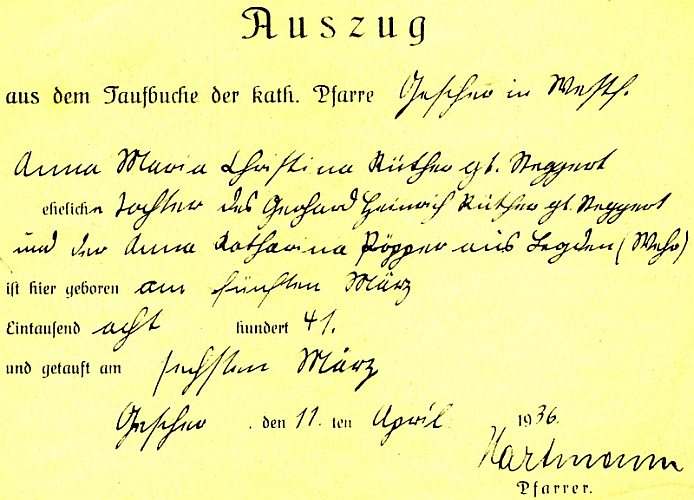 Auszug
aus dem Taufbuche der kath. Pfarre Gescher in Westf.
Anna Maria Christina Rüther gt. Steggert
eheliche Tochter des Gerhard Heinrich Rüther gt. Steggert
und der Anna Katharina Pöpper aus Legden (Wehr)
ist hier geboren am fünften März
Eintausend acht hundert 41.
und getauft am sechsten März
Gescher . den 11. ten April 1936.
Hartmann
Pfarrer.